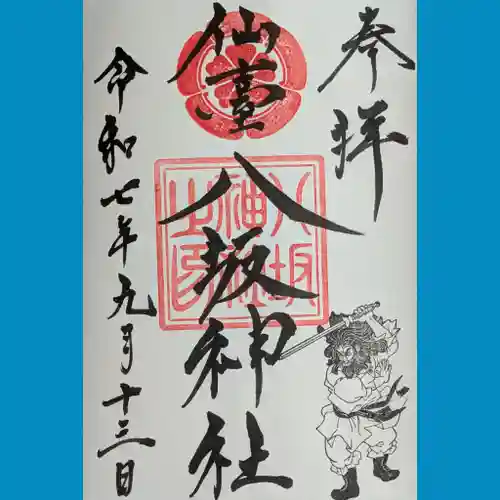 奉拝
仙臺
八坂神社
令和七年九月十三日
八坂
神社
之印